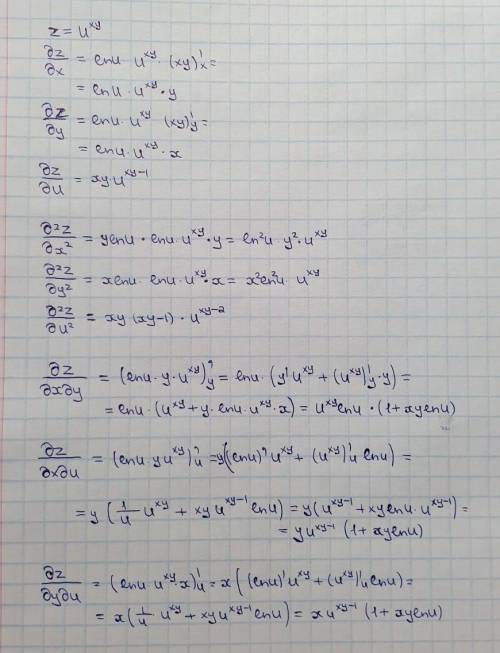 z = u^xy
∂z/∂x = ln u · u^xy · (xy)'x =
= ln u · u^xy · y
∂z/∂y = ln u · u^xy (xy)'y =
= ln u · u^xy · x
∂z/∂u = xy · u^xy-1
∂²z/∂x² = y ln u · ln u · u^xy · y = ln² u · y² · u^xy
∂²z/∂y² = x ln u · ln u · u^xy · x = x² ln² u · u^xy
∂²z/∂u² = xy · (xy-1) · u^xy-2
∂z/∂x∂y = (ln u · y · u^xy)'y = ln u · (y' u^xy + (u^xy)'y · y) =
= ln u · (u^xy + y · ln u · u^xy · x) = u^xy ln u · (1 + xy ln u)
∂z/∂x∂u = (ln u · y u^xy)'u = y((ln u)' u^xy + (u^xy)'u ln u) =
= y (1/u u^xy + xy u^xy-1 ln u) = y (u^xy-1 + xy ln u · u^xy-1) =
= y u^xy-1 (1 + xy ln u)
∂z/∂y∂u = (ln u · u^xy · x)'u = x((ln u)' u^xy + (u^xy)'u ln u) =
= x (1/u u^xy + xy u^xy-1 ln u) = x u^xy-1 (1 + xy ln u)